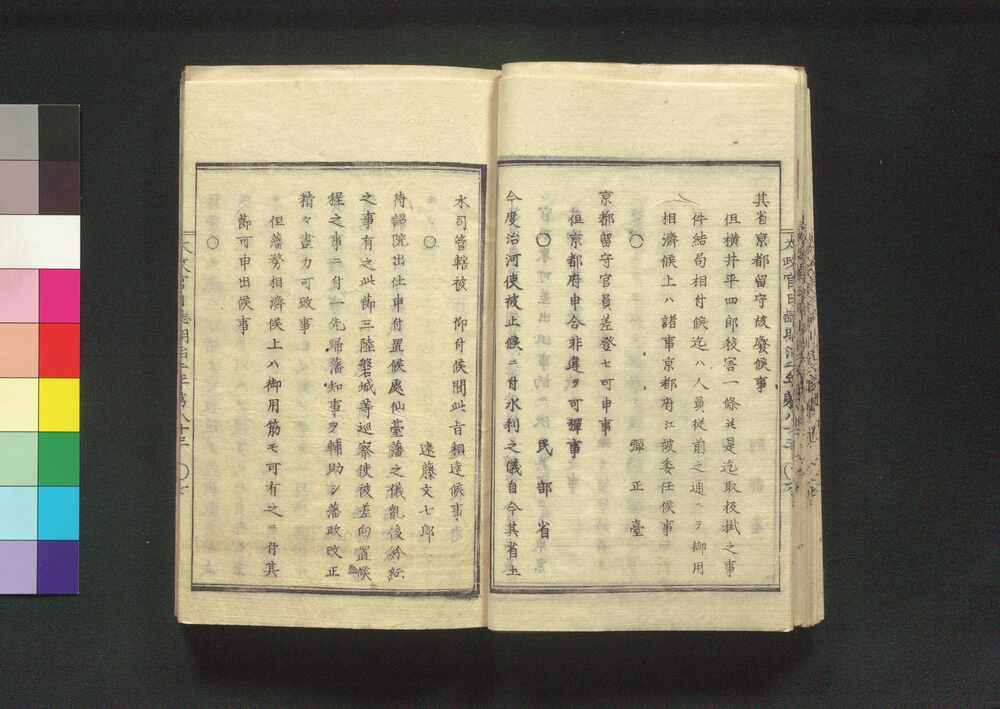 其省京都留守被廢候事
但横井平四郎殺害一條并是迄取扱掛之事
件結局相付候迄ハ人員従前之通ヘヲ御用
相濟候上ハ諸事京都府江被委任候事
○ 彈正臺
京都留守官員差登セ可申事
但京都府申合非違ヲ可彈事
○ 民部省
今度治河使被止候ニ付水利之儀自今其省土
木司管轄被 仰付候間此旨相達候事
○ 遠藤文七郎
待詔院出仕申付置候處仙臺藩之儀亂後紛紜
之事有之此節三陸磐城等巡察使被差向置候
程之事ニ付一先歸藩知事ヲ輔助シ藩政改正
精々盡力可致事
但藩務相濟候上ハ御用筋モ可有之ニ付其
節可申出候事
○
太政官日誌明治二年第八十三